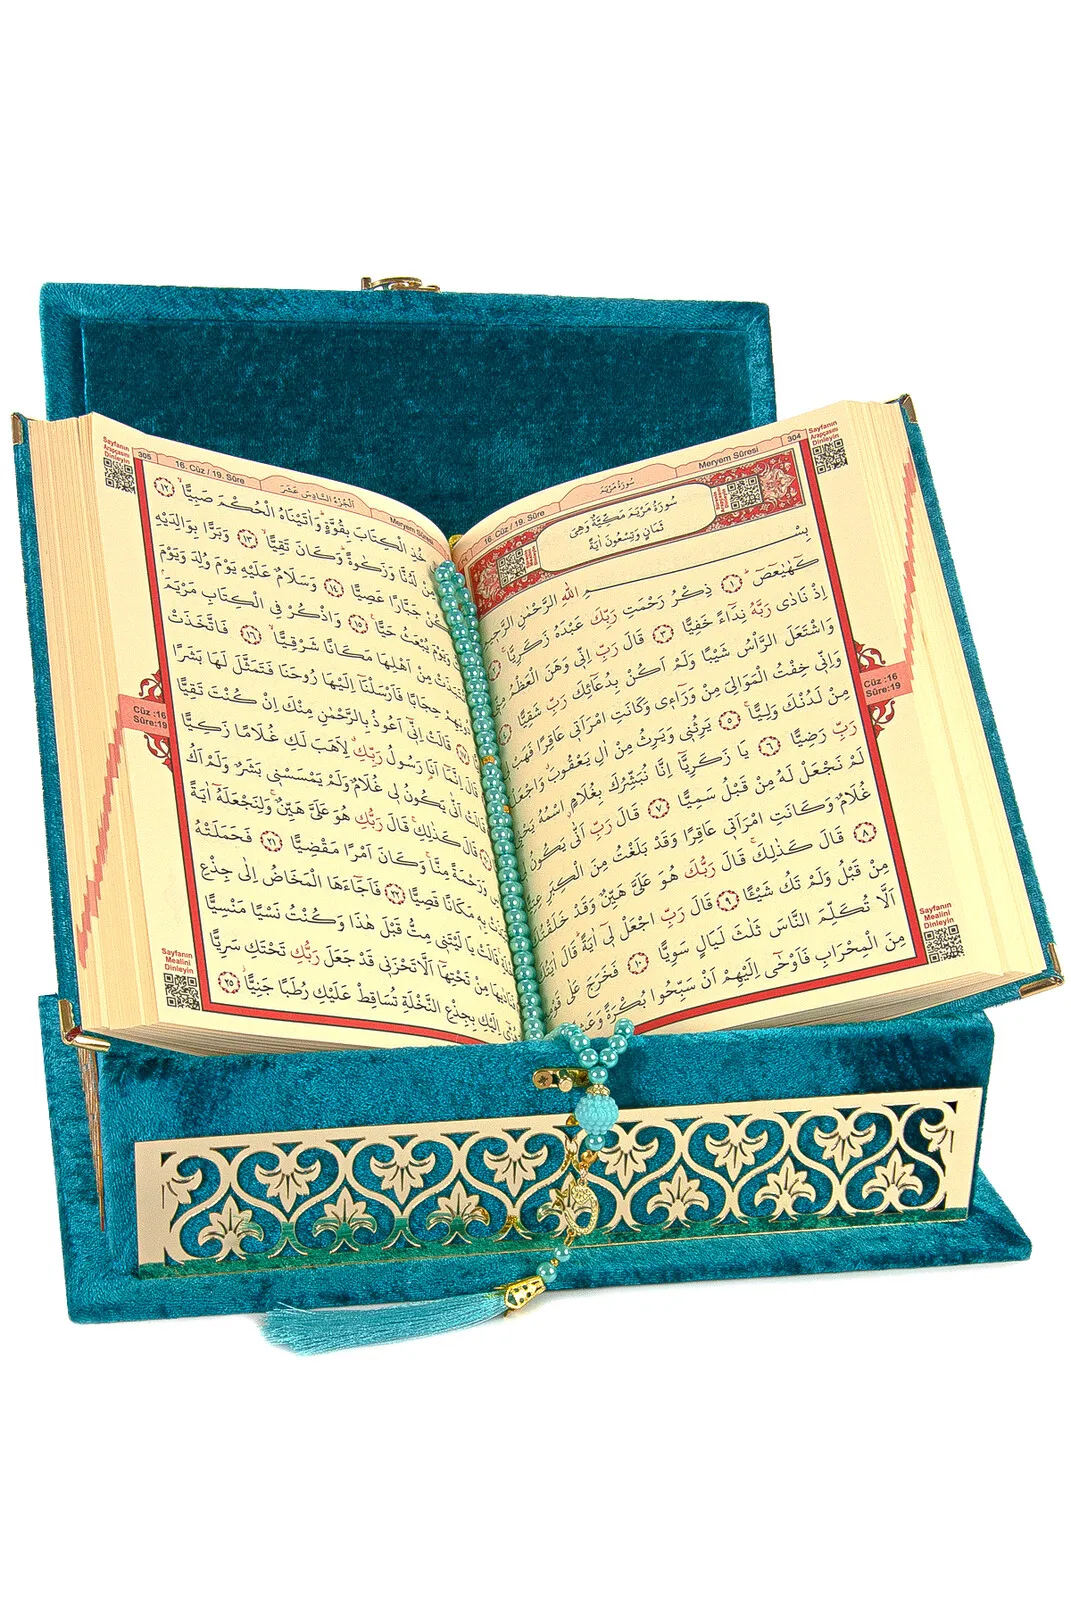 Sayfanın
Arapçasını
Dinleyin
304
Meryem Sûresi
سُورَةُ مَرْيَمَ
16. Cüz / 19. Sûre
سُورَةُ مَرْيَمَ مَكِّيَّةٌ وَهِيَ
ثَمَانٍ وَتِسْعُونَ اٰيَةً
بِسْــــــمِ اللّٰهِ الرَّحْمٰنِ الرَّحِيمِ
كٓهٰيٰعٓصٓ ﴿١﴾ ذِكْرُ رَحْمَتِ رَبِّكَ عَبْدَهُ زَكَرِيَّا
اِذْ نَادٰى رَبَّهُ نِدَٓاءً خَفِيًّا ﴿٣﴾ قَالَ رَبِّ اِنّٖى وَهَنَ الْعَظْمُ
وَاشْتَعَلَ الرَّأْسُ شَيْبًا وَلَمْ اَكُنْ بِدُعَٓائِكَ رَبِّ شَقِيًّا
وَاِنّٖى خِفْتُ الْمَوَالِىَ مِنْ وَرَٓاءٖى وَكَانَتِ امْرَاَتٖى عَاقِرًا فَهَبْ
مِنْ لَدُنْكَ وَلِيًّا ﴿٥﴾ يَرِثُنٖى وَيَرِثُ مِنْ اٰلِ يَعْقُوبَ
رَبِّ رَضِيًّا ﴿٦﴾ يَا زَكَرِيَّٓا اِنَّا نُبَشِّرُكَ بِغُلَامٍ اسْمُهُ
لَمْ نَجْعَلْ لَهُ مِنْ قَبْلُ سَمِيًّا ﴿٧﴾ قَالَ رَبِّ اَنّٰى يَكُونُ
غُلَامٌ وَكَانَتِ امْرَاَتٖى عَاقِرًا وَقَدْ بَلَغْتُ مِنَ الْكِبَرِ
﴿٨﴾ قَالَ كَذٰلِكَ قَالَ رَبُّكَ هُوَ عَلَىَّ هَيِّنٌ وَقَدْ
مِنْ قَبْلُ وَلَمْ تَكُ شَيْئًا ﴿٩﴾ قَالَ رَبِّ اجْعَلْ لٖٓى اٰيَةً قَالَ
اَلَّا تُكَلِّمَ النَّاسَ ثَلٰثَ لَيَالٍ سَوِيًّا ﴿١٠﴾ فَخَرَجَ عَلٰى
مِنَ الْمِحْرَابِ فَاَوْحٰٓى اِلَيْهِمْ اَنْ سَبِّحُوا بُكْرَةً
Cüz :16
Sûre:19
Sayfanın
Mealini
Dinleyin
Sayfanın
Arapçasını
Dinleyin
305
16. Cüz / 19. Sûre
اَلْجُزْءُ السَّادِسَ عَشَرَ
Meryem Sûresi
خُذِ الْكِتَابَ بِقُوَّةٍ وَاٰتَيْنَاهُ الْحُكْمَ صَبِيًّا ﴿١٢﴾
مِنْ لَدُنَّا وَزَكٰوةً وَكَانَ تَقِيًّا ﴿١٣﴾ وَبَرًّا بِوَالِدَيْهِ
جَبَّارًا عَصِيًّا ﴿١٤﴾ وَسَلَامٌ عَلَيْهِ يَوْمَ وُلِدَ وَيَوْمَ
وَيَوْمَ يُبْعَثُ حَيًّا ﴿١٥﴾ وَاذْكُرْ فِى الْكِتَابِ مَرْيَمَ
مِنْ اَهْلِهَا مَكَانًا شَرْقِيًّا ﴿١٦﴾ فَاتَّخَذَتْ
حِجَابًا فَاَرْسَلْنَٓا اِلَيْهَا رُوحَنَا فَتَمَثَّلَ لَهَا بَشَرًا
قَالَتْ اِنّٖٓى اَعُوذُ بِالرَّحْمٰنِ مِنْكَ اِنْ كُنْتَ تَقِيًّا
قَالَ اِنَّمَٓا اَنَا رَسُولُ رَبِّكِ لِاَهَبَ لَكِ غُلَامًا زَكِيًّا
قَالَتْ اَنّٰى يَكُونُ لٖى غُلَامٌ وَلَمْ يَمْسَسْنٖى بَشَرٌ وَلَمْ اَكُ
قَالَ كَذٰلِكِ قَالَ رَبُّكِ هُوَ عَلَىَّ هَيِّنٌ وَلِنَجْعَلَهُٓ اٰيَةً
وَرَحْمَةً مِنَّا وَكَانَ اَمْرًا مَقْضِيًّا ﴿٢١﴾ فَحَمَلَتْهُ
بِهٖ مَكَانًا قَصِيًّا ﴿٢٢﴾ فَاَجَٓاءَهَا الْمَخَاضُ اِلٰى جِذْعِ
قَالَتْ يَا لَيْتَنٖى مِتُّ قَبْلَ هٰذَا وَكُنْتُ نَسْيًا مَنْسِيًّا
فَنَادٰيهَا مِنْ تَحْتِهَٓا اَلَّا تَحْزَنٖى قَدْ جَعَلَ رَبُّكِ تَحْتَكِ سَرِيًّا
اِلَيْكِ بِجِذْعِ النَّخْلَةِ تُسَاقِطْ عَلَيْكِ رُطَبًا جَنِيًّا ﴿٢٥﴾
Cüz :16
Sûre:19
Sayfanın
Mealini
Dinleyin